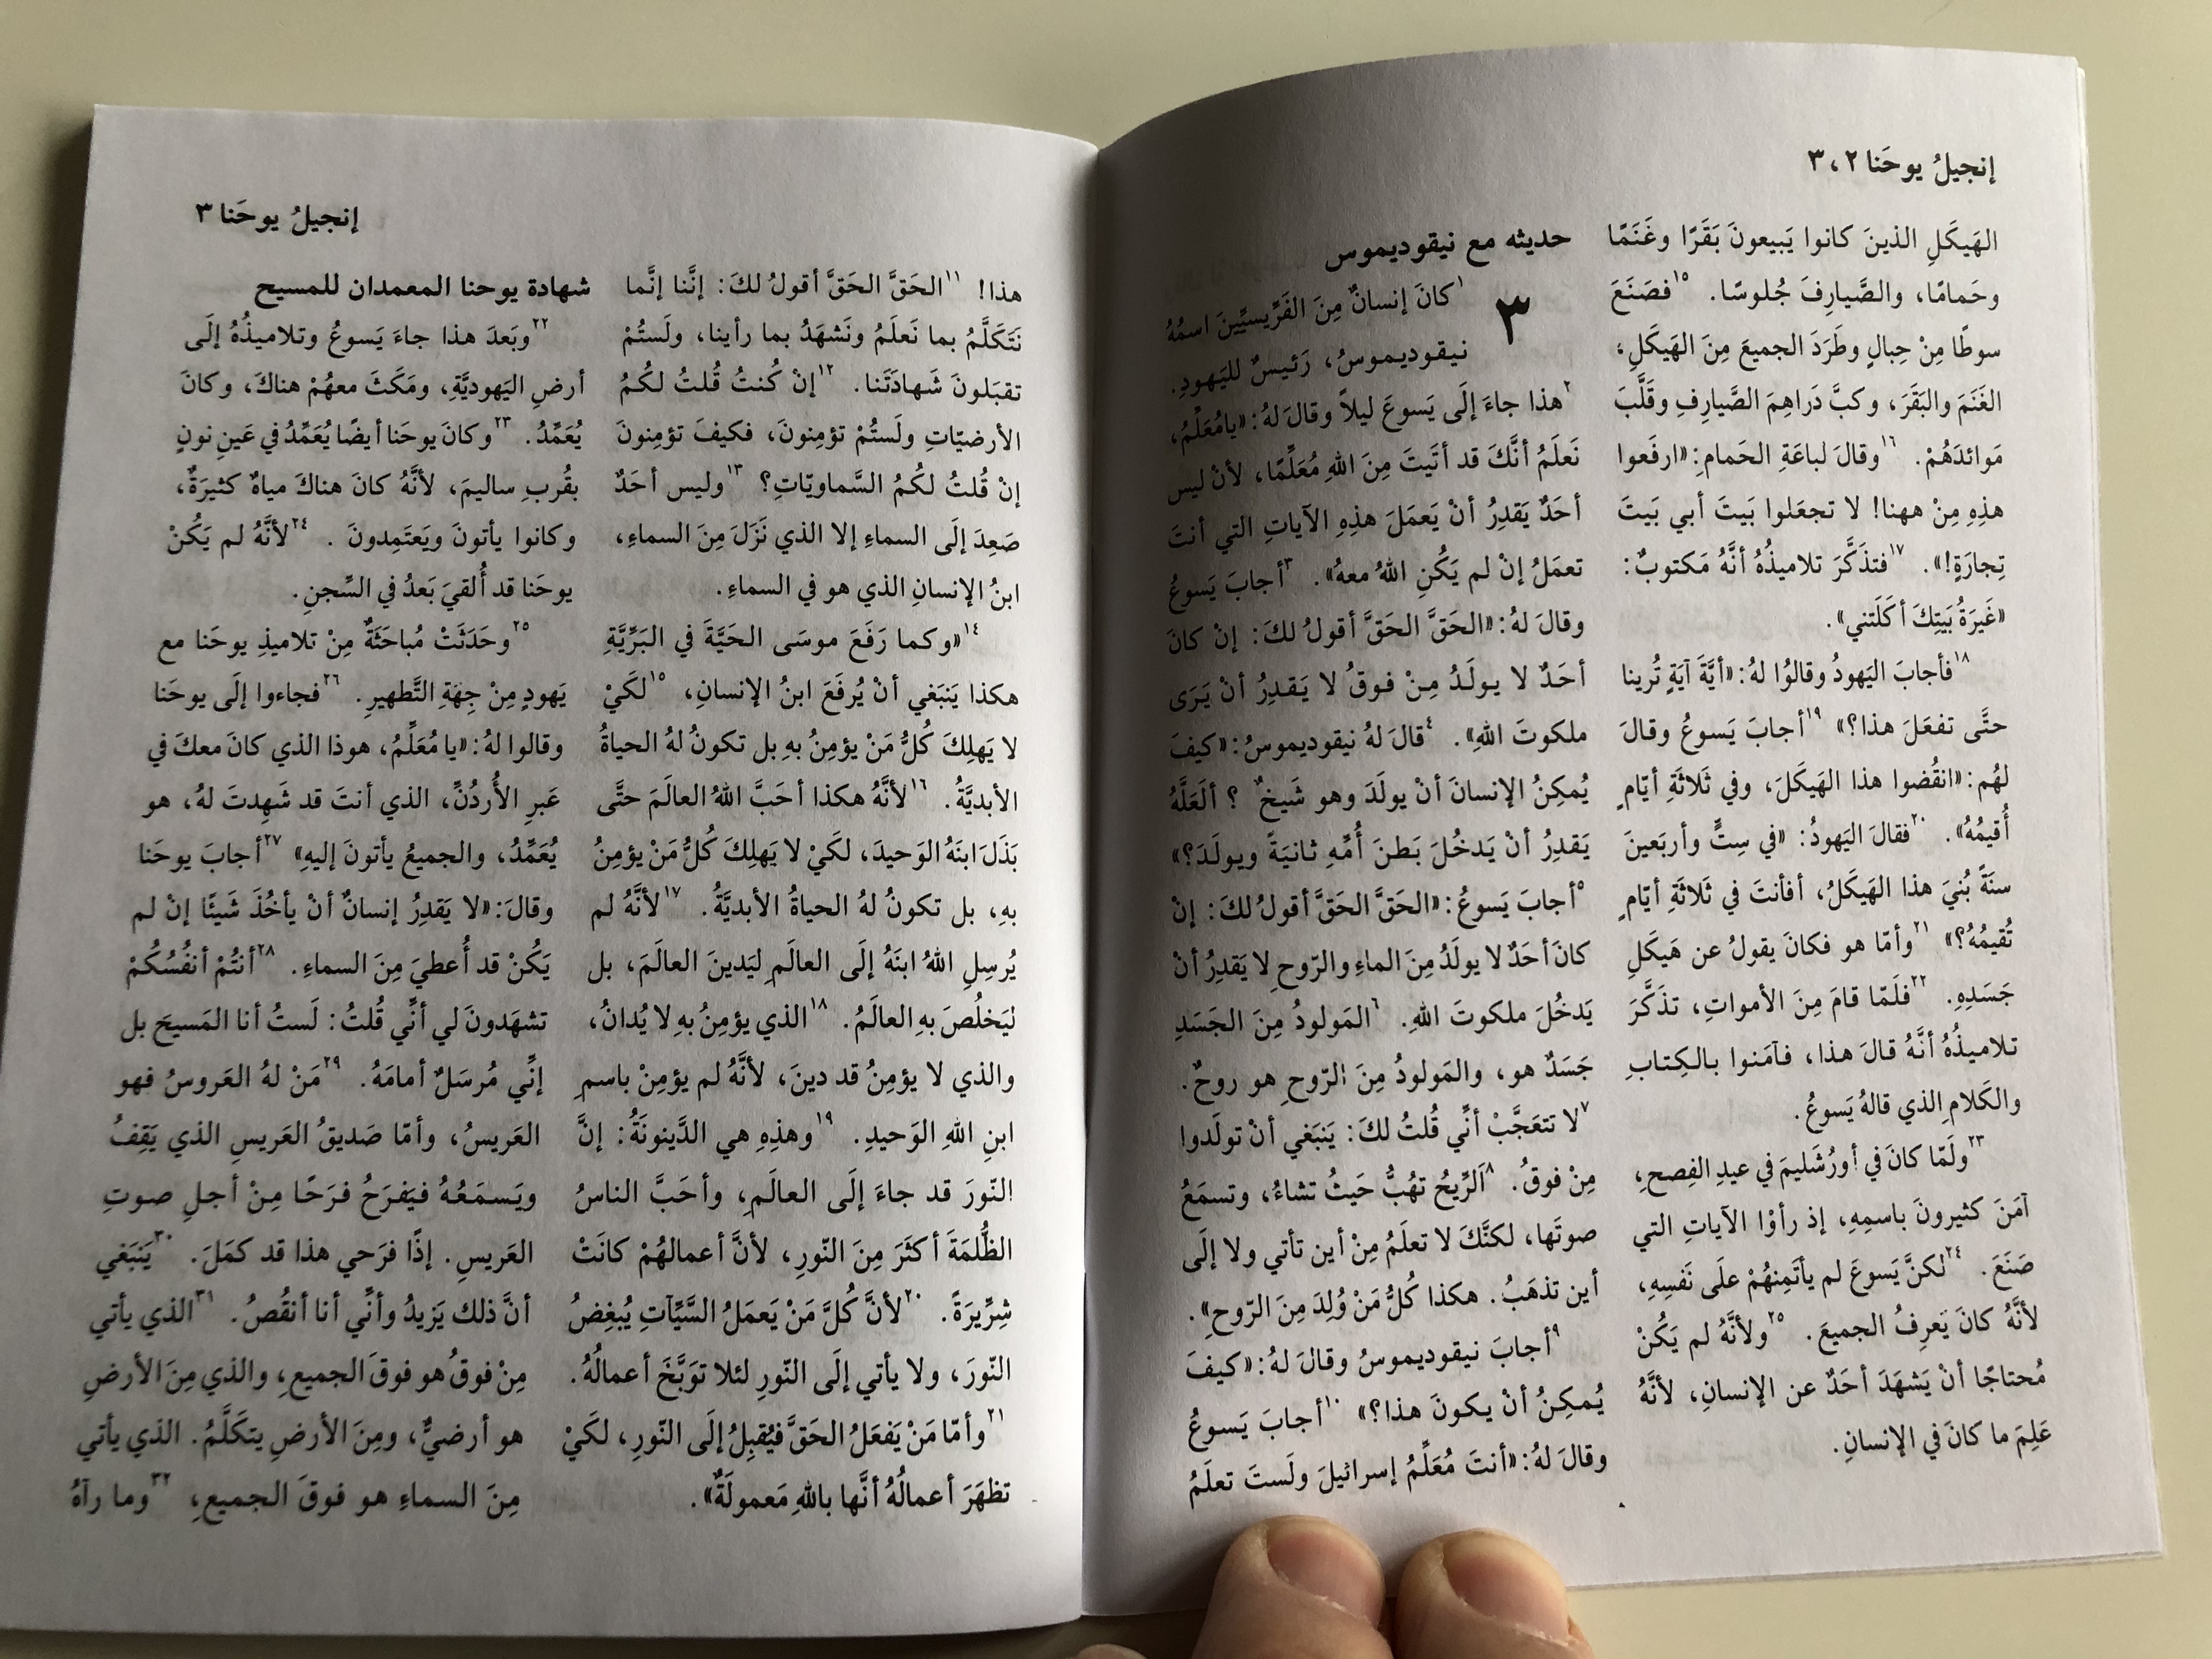 إنجيلُ يوحَنا ٢، ٣
الهَيكَلِ الذينَ كانوا يَبيعونَ بَقَرًا وغَنَمًا
وحَمامًا، والصَّيارِفَ جُلوسًا. ١٥فصَنَعَ
سوطًا مِنْ حِبالٍ وطَرَدَ الجميعَ مِنَ الهَيكَلِ،
الغَنَمَ والبَقَرَ، وكبَّ دَراهِمَ الصَّيارِفِ وقَلَّبَ
مَوائدَهُمْ. ١٦وقالَ لباعَةِ الحَمامِ: «ارفَعوا
هذِهِ مِنْ ههنا! لا تجعَلوا بَيتَ أبي بَيتَ
تِجارَةٍ!». ١٧فتذَكَّرَ تلاميذُهُ أنَّهُ مَكتوبٌ:
«غَيرَةُ بَيتِكَ أكَلَتني».
١٨فأجابَ اليَهودُ وقالوُا لهُ: «أيَّةَ آيَةٍ تُرينا
حتَّى تفعَلَ هذا؟» ١٩أجابَ يَسوعُ وقالَ
لهُم: «انقُضوا هذا الهَيكَلَ، وفي ثَلاثَةِ أيّامٍ
أُقيمُهُ». ٢٠فقالَ اليَهودُ: «في سِتٍّ وأربَعينَ
سنَةً بُنيَ هذا الهَيكَلُ، أفأنتَ في ثَلاثَةِ أيّامٍ
تُقيمُهُ؟» ٢١وأمّا هو فكانَ يقولُ عن هَيكَلِ
جَسَدِهِ. ٢٢فلَمّا قامَ مِنَ الأمواتِ، تذَكَّرَ
تلاميذُهُ أنَّهُ قالَ هذا، فآمَنوا بالكِتابِ
والكَلامِ الذي قالهُ يَسوعُ.
٢٣ولَمّا كانَ في أورُشَليمَ في عيدِ الفِصحِ،
آمَنَ كثيرونَ باسمِهِ، إذ رأوْا الآياتِ التي
صَنَعَ. ٢٤لكنَّ يَسوعَ لم يأتَمِنهُمْ علَى نَفسِهِ،
لأنَّهُ كانَ يَعرِفُ الجميعَ. ٢٥ولأنَّهُ لم يَكُنْ
مُحتاجًا أنْ يَشهَدَ أحَدٌ عن الإنسانِ، لأنَّهُ
عَلِمَ ما كانَ في الإنسانِ.
حديثه مع نيقوديموس
٣ ١كانَ إنسانٌ مِنَ الفَرِّيسيِّينَ اسمُهُ
نيقوديموسُ، رَئيسٌ لليَهودِ.
٢هذا جاءَ إلَى يَسوعَ ليلاً وقالَ لهُ: «يامُعَلِّمُ،
نَعلَمُ أنَّكَ قد أتَيتَ مِنَ اللهِ مُعَلِّمًا، لأنْ ليس
أحَدٌ يَقدِرُ أنْ يَعمَلَ هذِهِ الآياتِ التي أنتَ
تعمَلُ إنْ لم يَكُنِ اللهُ معهُ». ٣أجابَ يَسوعُ
وقالَ لهُ: «الحَقَّ الحَقَّ أقولُ لكَ: إنْ كانَ
أحَدٌ لا يولَدُ مِنْ فوقُ لا يَقدِرُ أنْ يَرَى
ملكوتَ اللهِ». ٤قالَ لهُ نيقوديموسُ: «كيفَ
يُمكِنُ الإنسانَ أنْ يولَدَ وهو شَيخٌ ؟ ألَعَلَّهُ
يَقدِرُ أنْ يَدخُلَ بَطنَ أُمِّهِ ثانيَةً ويولَدَ؟»
٥أجابَ يَسوعُ: «الحَقَّ الحَقَّ أقولُ لكَ: إنْ
كانَ أحَدٌ لا يولَدُ مِنَ الماءِ والرّوحِ لا يَقدِرُ أنْ
يَدخُلَ ملكوتَ اللهِ. ٦المَولودُ مِنَ الجَسَدِ
جَسَدٌ هو، والمَولودُ مِنَ الرّوحِ هو روحٌ.
٧لا تتعَجَّبْ أنِّي قُلتُ لكَ: يَنبَغي أنْ تولَدوا
مِنْ فوقُ. ٨اَلرِّيحُ تهُبُّ حَيثُ تشاءُ، وتسمَعُ
صوتَها، لكنَّكَ لا تعلَمُ مِنْ أين تأتي ولا إلَى
أين تذهَبُ. هكذا كُلُّ مَنْ وُلِدَ مِنَ الرّوحِ».
٩أجابَ نيقوديموسُ وقالَ لهُ: «كيفَ
يُمكِنُ أنْ يكونَ هذا؟» ١٠أجابَ يَسوعُ
وقالَ لهُ: «أنتَ مُعَلِّمُ إسرائيلَ ولَستَ تعلَمُ
إنجيلُ يوحَنا ٣
هذا! ١١الحَقَّ الحَقَّ أقولُ لكَ: إنَّنا إنَّما
نَتَكَلَّمُ بما نَعلَمُ ونَشهَدُ بما رأينا، ولَستُمْ
تقبَلونَ شَهادَتَنا. ١٢إنْ كُنتُ قُلتُ لكُمُ
الأرضيّاتِ ولَستُمْ تؤمِنونَ، فكيفَ تؤمِنونَ
إنْ قُلتُ لكُمُ السَّماويّاتِ؟ ١٣وليس أحَدٌ
صَعِدَ إلَى السماءِ إلا الذي نَزَلَ مِنَ السماءِ،
ابنُ الإنسانِ الذي هو في السماءِ.
١٤«وكما رَفَعَ موسَى الحَيَّةَ في البَرِّيَّةِ
هكذا يَنبَغي أنْ يُرفَعَ ابنُ الإنسانِ، ١٥لكَيْ
لا يَهلِكَ كُلُّ مَنْ يؤمِنُ بهِ بل تكونُ لهُ الحياةُ
الأبديَّةُ. ١٦لأنَّهُ هكذا أحَبَّ اللهُ العالَمَ حتَّى
بَذَلَ ابنَهُ الوَحيدَ، لكَيْ لا يَهلِكَ كُلُّ مَنْ يؤمِنُ
بهِ، بل تكونُ لهُ الحياةُ الأبديَّةُ. ١٧لأنَّهُ لم
يُرسِلِ اللهُ ابنَهُ إلَى العالَمِ ليَدينَ العالَمَ، بل
ليَخلُصَ بهِ العالَمُ. ١٨الذي يؤمِنُ بهِ لا يُدانُ،
والذي لا يؤمِنُ قد دينَ، لأنَّهُ لم يؤمِنْ باسمِ
ابنِ اللهِ الوَحيدِ. ١٩وهذِهِ هي الدَّينونَةُ: إنَّ
النّورَ قد جاءَ إلَى العالَمِ، وأحَبَّ الناسُ
الظُّلمَةَ أكثَرَ مِنَ النّورِ، لأنَّ أعمالهُمْ كانَتْ
شِرِّيرَةً. ٢٠لأنَّ كُلَّ مَنْ يَعمَلُ السَّيِّآتِ يُبغِضُ
النّورَ، ولا يأتي إلَى النّورِ لئلا توَبَّخَ أعمالُهُ.
٢١وأمّا مَنْ يَفعَلُ الحَقَّ فيُقبِلُ إلَى النّورِ، لكَيْ
تظهَرَ أعمالُهُ أنَّها باللهِ مَعمولَةٌ».
شهادة يوحنا المعمدان للمسيح
٢٢وبَعدَ هذا جاءَ يَسوعُ وتلاميذُهُ إلَى
أرضِ اليَهوديَّةِ، ومَكَثَ معهُمْ هناكَ، وكانَ
يُعَمِّدُ. ٢٣وكانَ يوحَنا أيضًا يُعَمِّدُ في عَينِ نونٍ
بقُربِ ساليمَ، لأنَّهُ كانَ هناكَ مياهٌ كثيرَةٌ،
وكانوا يأتونَ ويَعتَمِدونَ . ٢٤لأنَّهُ لم يَكُنْ
يوحَنا قد أُلقيَ بَعدُ في السِّجنِ.
٢٥وحَدَثَتْ مُباحَثَةٌ مِنْ تلاميذِ يوحَنا مع
يَهودٍ مِنْ جِهَةِ التَّطهيرِ. ٢٦فجاءوا إلَى يوحَنا
وقالوا لهُ: «يا مُعَلِّمُ، هوذا الذي كانَ معكَ في
عَبرِ الأُردُنِّ، الذي أنتَ قد شَهِدتَ لهُ، هو
يُعَمِّدُ، والجميعُ يأتونَ إليهِ» ٢٧أجابَ يوحَنا
وقالَ: «لا يَقدِرُ إنسانٌ أنْ يأخُذَ شَيئًا إنْ لم
يَكُنْ قد أُعطيَ مِنَ السماءِ. ٢٨أنتُمْ أنفُسُكُمْ
تشهَدونَ لي أنِّي قُلتُ: لَستُ أنا المَسيحَ بل
إنِّي مُرسَلٌ أمامَهُ. ٢٩مَنْ لهُ العَروسُ فهو
العَريسُ، وأمّا صَديقُ العَريسِ الذي يَقِفُ
ويَسمَعُهُ فيَفرَحُ فرَحًا مِنْ أجلِ صوتِ
العَريسِ. إذًا فرَحي هذا قد كمَلَ. ٣٠يَنبَغي
أنَّ ذلك يَزيدُ وأنِّي أنا أنقُصُ. ٣١الذي يأتي
مِنْ فوقُ هو فوقَ الجميعِ، والذي مِنَ الأرضِ
هو أرضيٌّ، ومِنَ الأرضِ يتكَلَّمُ. الذي يأتي
مِنَ السماءِ هو فوقَ الجميعِ، ٣٢وما رآهُ